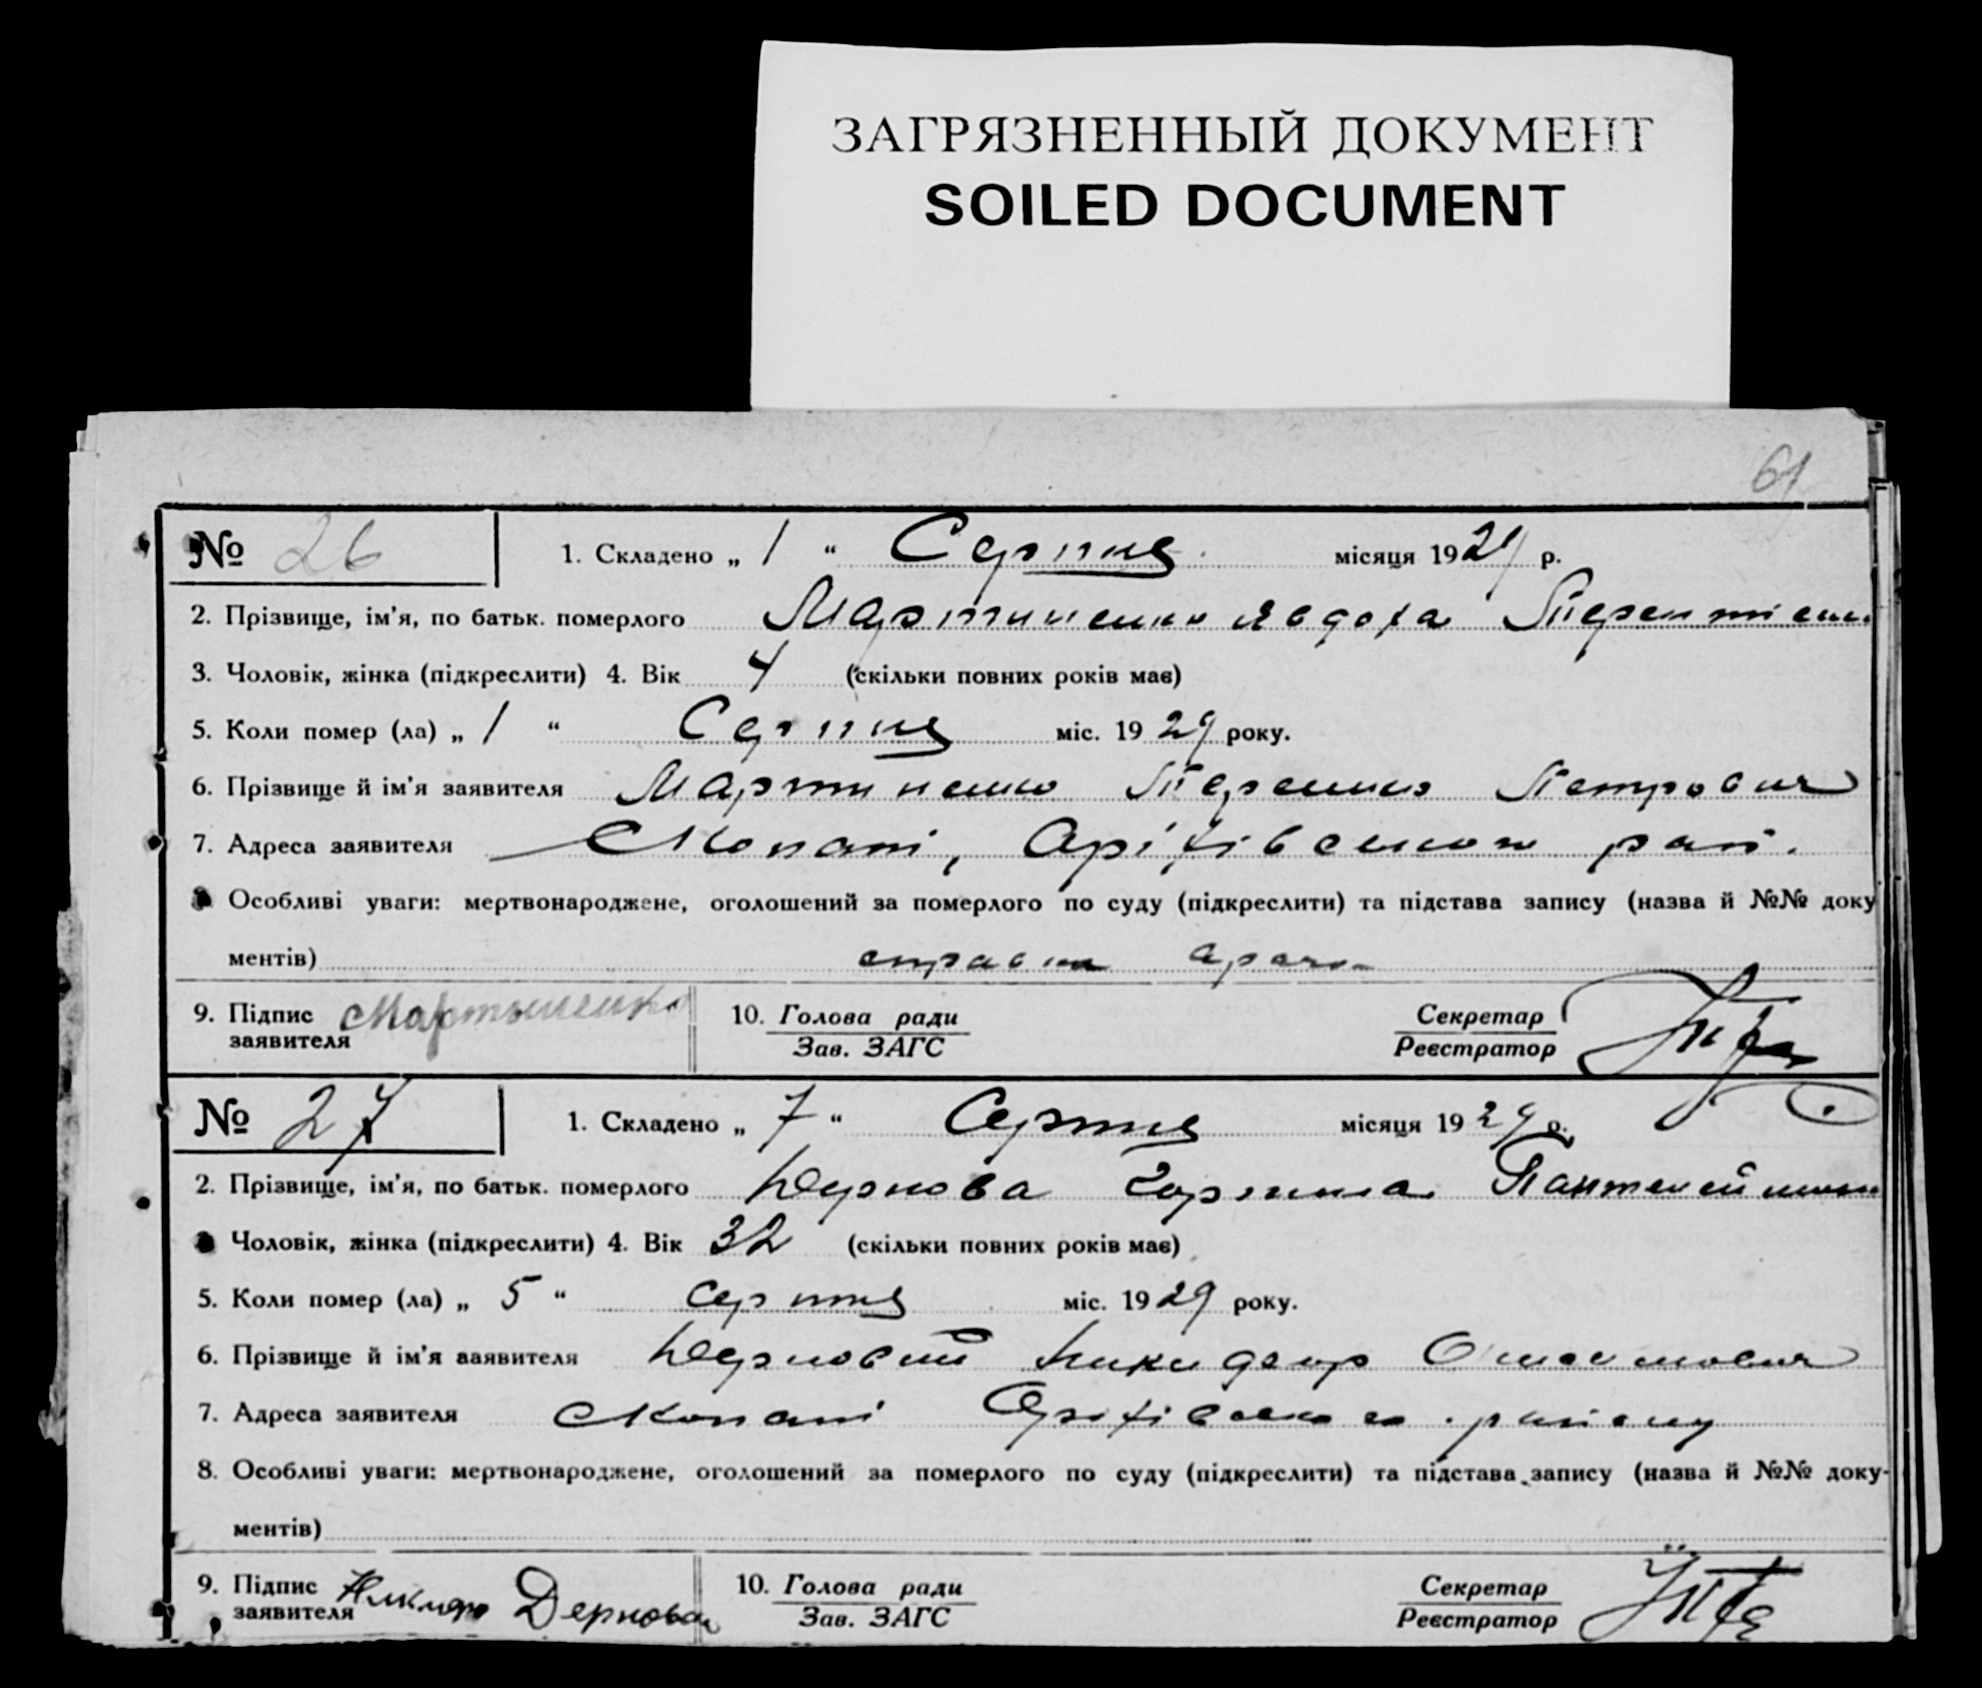 ЗАГРЯЗНЕННЫЙ ДОКУМЕНТ
SOILED DOCUMENT
61
№ 26 1. Складено „ 1 “ Серпня місяця 1929 р.
2. Прізвище, ім'я, по батьк. померлого Мартиненко Явдоха
3. Чоловік, жінка (підкреслити) 4. Вік 4 (скільки повних років має)
5. Коли помер (ла) „ 1 “ Серпня міс. 1929 року.
6. Прізвище й ім'я заявителя Мартиненко Терешко Петрович
7. Адреса заявителя Копані, Оріхівського рай.
Особливі уваги: мертвонароджене, оголошений за померлого по суду (підкреслити) та підстава запису (назва й №№ доку
ментів)
9. Підпис заявителя Мартыненко 10. Голова ради Зав. ЗАГС Секретар Реєстратор
№ 27 1. Складено „ 7 “ Серпня місяця 1929 р.
2. Прізвище, ім'я, по батьк. померлого Дернова Горпина
Чоловік, жінка (підкреслити) 4. Вік 32 (скільки повних років має)
5. Коли помер (ла) „ 5 “ серпня міс. 1929 року.
6. Прізвище й ім'я заявителя Дерновий
7. Адреса заявителя Копані Оріхівського району
8. Особливі уваги: мертвонароджене, оголошений за померлого по суду (підкреслити) та підстава запису (назва й №№ доку-
ментів)
9. Підпис заявителя 10. Голова ради Зав. ЗАГС Секретар Реєстратор